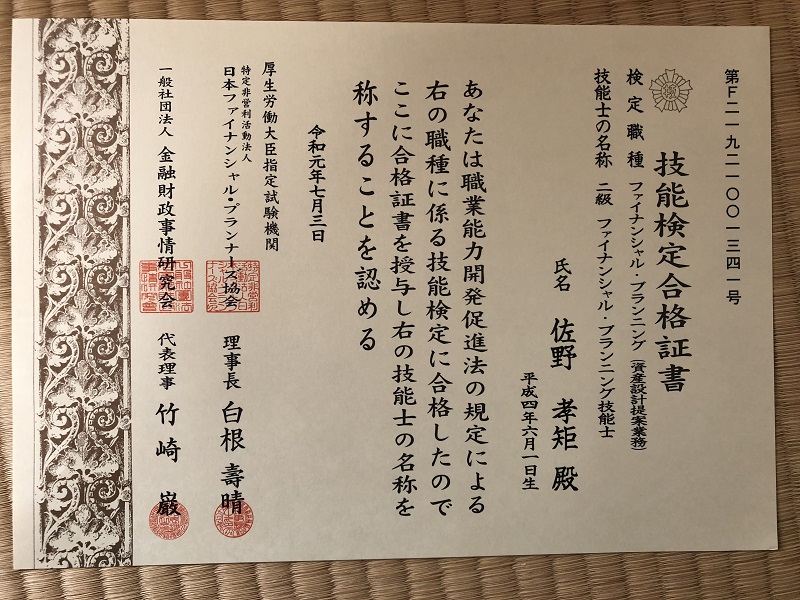 第F二一九二一〇〇一三四一号
技能検定合格証書
検定職種 ファイナンシャル・プランニング(資産設計提案業務)
技能士の名称 二級 ファイナンシャル・プランニング技能士
氏名 佐野 孝矩 殿
平成四年六月一日生
あなたは職業能力開発促進法の規定による
右の職種に係る技能検定に合格したので
ここに合格証書を授与し右の技能士の名称を
称することを認める
令和元年七月三日
厚生労働大臣指定試験機関
特定非営利活動法人
日本ファイナンシャル・プランナーズ協会 理事長 白根 壽晴
一般社団法人 金融財政事情研究会 代表理事 竹崎 巌